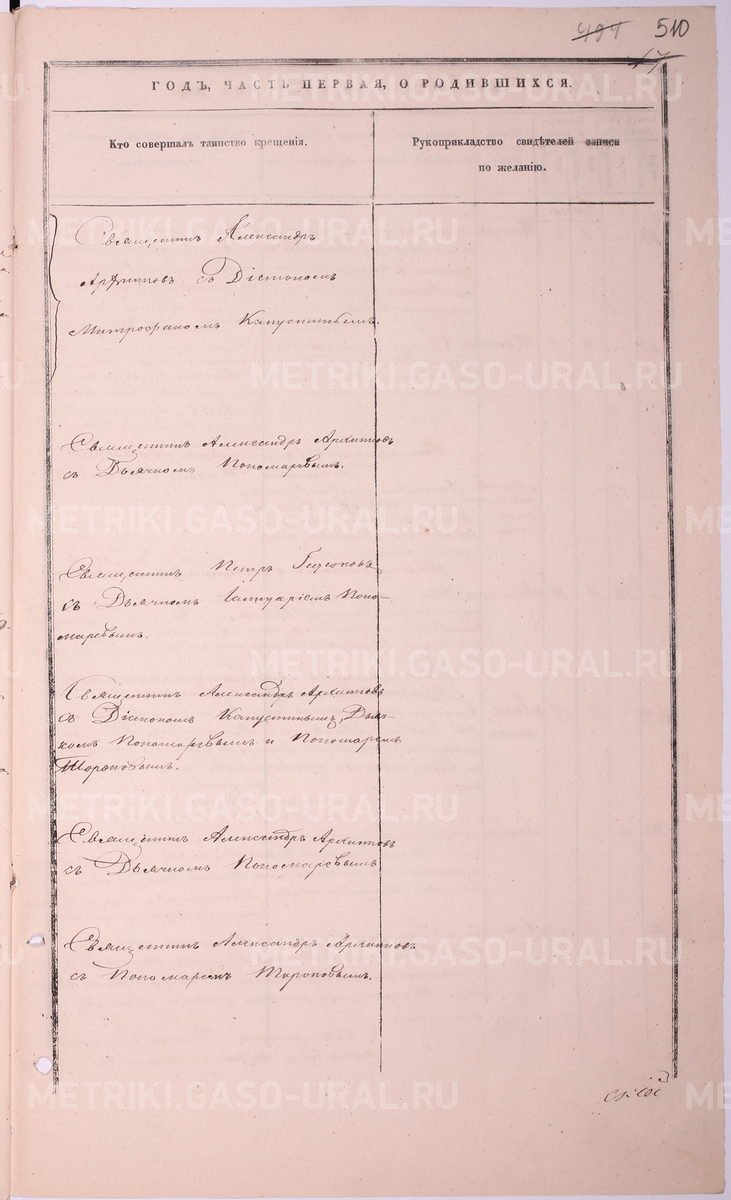 497 510
17
ГОДЪ, ЧАСТЬ ПЕРВАЯ, О РОДИВШИХСЯ.
Кто совершалъ таинство крещенія.
Рукоприкладство свидѣтелей записи
по желанію.
Священникъ Александръ
Архиповъ съ Діакономъ
Митрофаномъ Капустинымъ.
Священникъ Александръ Архиповъ
съ Дьячкомъ Пономаревымъ.
Священникъ Петръ
съ Дьячкомъ Іаннуаріемъ Поно-
маревымъ.
Священникъ Александръ Архиповъ
съ Діакономъ Капустинымъ, Дьяч-
комъ Пономаревымъ и Пономаремъ
Тороповымъ.
Священникъ Александръ Архиповъ
съ Дьячкомъ Пономаревымъ
Священникъ Александръ Архиповъ
съ Пономаремъ Тороповымъ.
METRIKI.GASO-URAL.RU